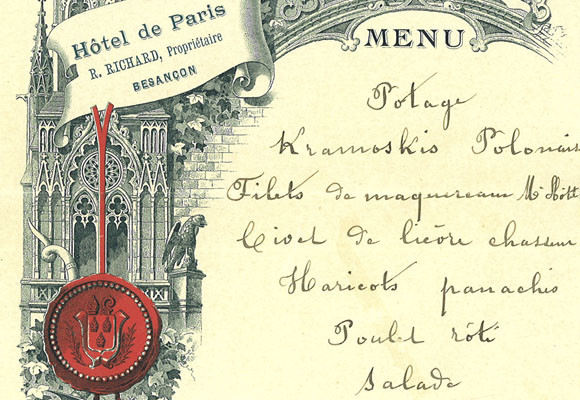 Hôtel de Paris
R. RICHARD, Propriétaire
BESANÇON
MENU
Potage
Kramoskis Polonais
Filets de maquereau M. d'Hôt
Civet de lièvre chasseur
Haricots panachés
Poulet rôti
Salade